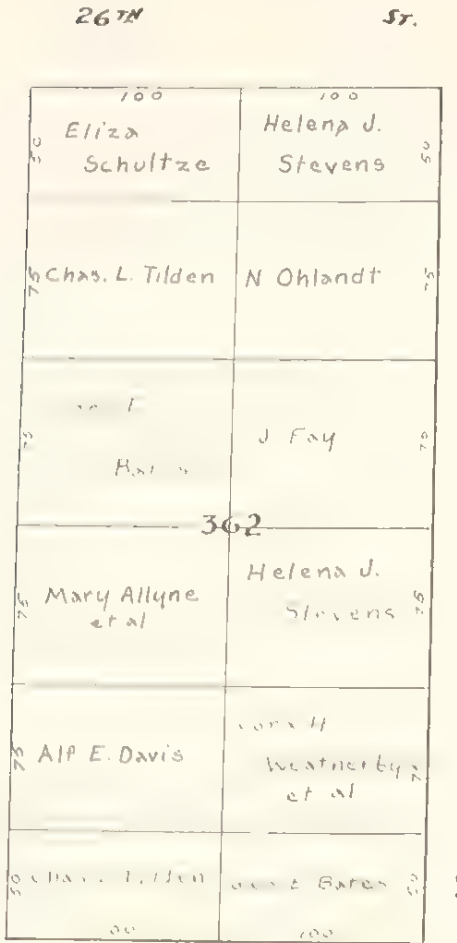 26TH ST.
100 100
50 Eliza
Schultze
Helena J.
Stevens 50
75 Chas. L. Tilden
N Ohlandt 75
75
J Fay 75
362
75 Mary Allyne
et al
Helena J.
Stevens 75
75 Alf E. Davis
Weatherby 75
et al
50 Tilden
Bates 50
100